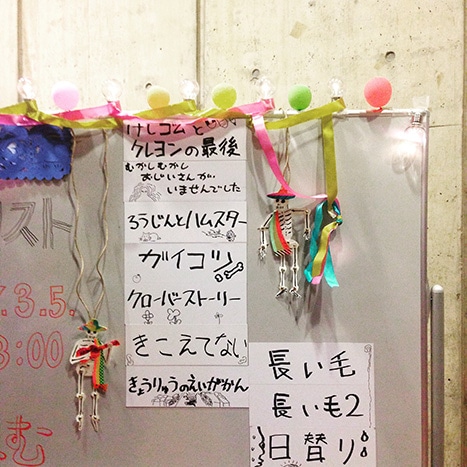 けしゴムと
クレヨンの最後
むかしむかし
おじいさんが
いませんでした
ろうじんとハムスター
ガイコツ
クローバーストーリー
きこえてない
きょうりゅうのえいがかん
長い毛
長い毛2
日替り
スト
.3.5.
:00
む